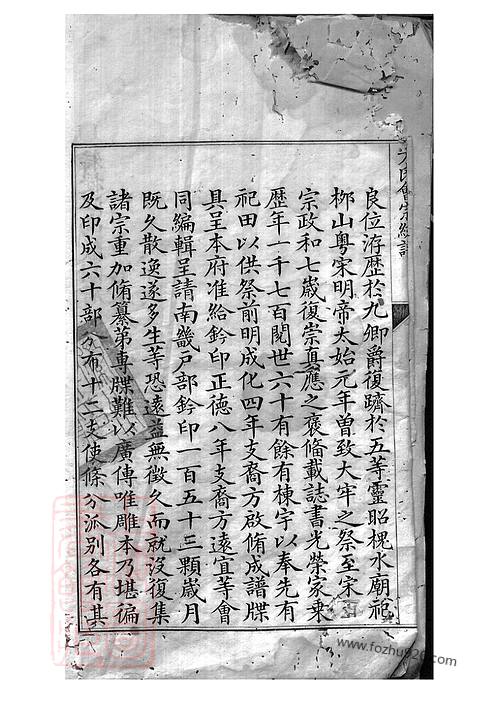 良位洊歷於九卿爵復躋於五等靈昭槐水廟祀
栁山粤宋明帝太始元年曽致大牢之祭至宋
宗政和七歲復崇真應之褒俻載誌書光榮家乗
歷年一千七百閱世六十有餘有棟宇以奉先有
祀田以供祭前明成化四年支裔方啟脩成譜牒
具呈本府准給鈐印正德八年支裔方遠宜等會
同編輯呈請南畿戸部鈐印一百五十三顆歲月
既久散逸遂多生等恐遠益無徴久而就沒復集
諸宗重加脩纂第專牒難以廣傳唯雕本乃堪徧
及印成六十部分布十二支使條分派別各有其
方氏會宗統譜
www.fozhu920.com